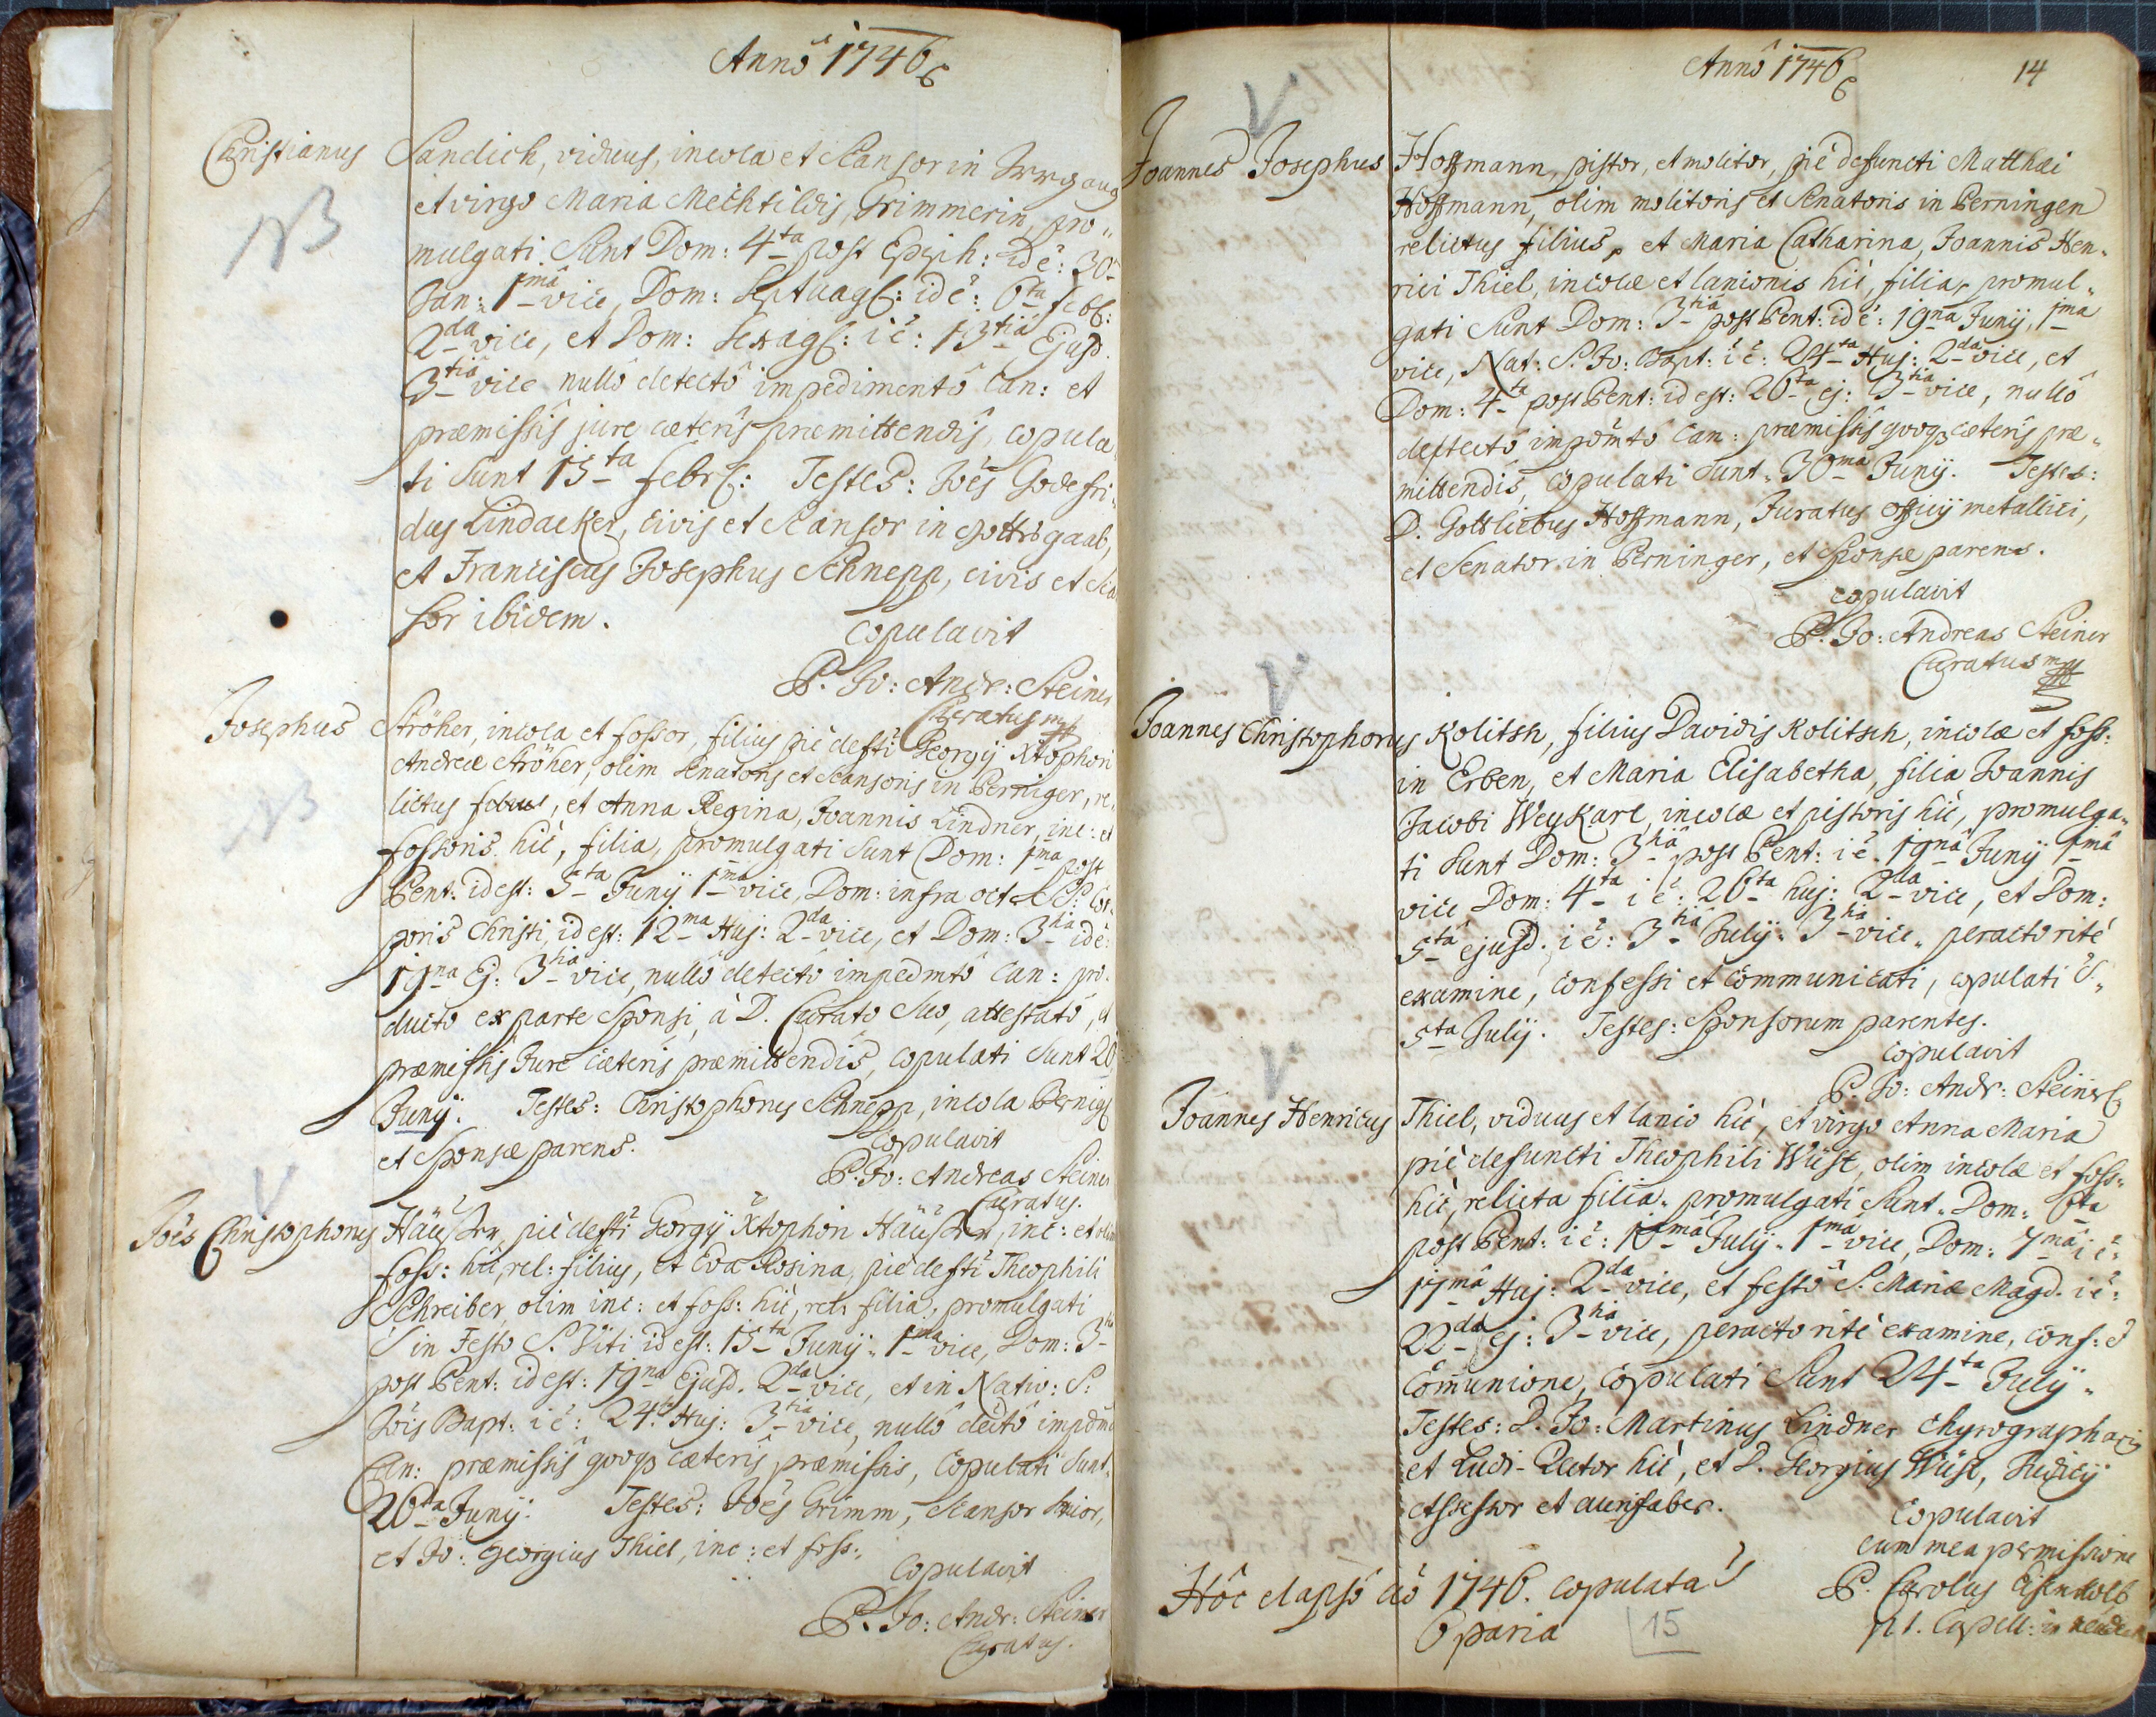 Annô 1746
Christianus Sandich, viduus, incola et Scansor in Irrgang
NB
et virgo Maria Mechtildis, Grimmerin, pro„
mulgati Sunt Dom: 4ta post Epiph: id ē: 30
Jan: 1mâ vice, Dom: Septuag: id ē: 6ta Feb:
2da vice, et Dom: Sexag: i ē: 13tiâ Ejusd.
3tiâ vice nullô detectô impedimentô Can: et
præmissis jure cæteris præmittendis, copula„
ti Sunt 15ta Febr: Testes: Jōes Godefri„
dus Lindacker, civis et Scansor in Gottsgaab,
et Franciscus Josephus Schnepp, civis et Sca
sor ibidem.
Copulavit
P. Jo: Andr: Steiner
Curatus mp
Josephus Ströher, incola et fossor, filius piè defti Georgij Xtophori
NB
Andreæ Ströher, olim Senatoris et Scansoris in Perniger, re„
lictus filius, et Anna Regina, Joannis Lindner, inc: et
fossoris hic, filia, promulgati Sunt Dom: 1ma post
Pent: id est: 5ta Junij 1ma vice, Dom: infra oct SS: Cor„
poris Christi, id est: 12ma Huj: 2da vice, et Dom: 3tiâ id ē:
19na Ej: 3tiâ vice, nullô detectô impedmtô Can: pro„
ducto ex parte Sponsi, à D. Curato Suo, attestatô, et
præmissis Jure cæteris præmittendis, copulati Sunt 20
Junij. Testes: Christophorus Schnepp, incola Pernig:
et Sponsæ parens.
Copulavit
P. Jo: Andreas Steiner
Curatus.
Jōes Christophorus Häusler, piè defti Georgij Xtophori Häusler, inc: et olim
V
foss: hic, rel: filius, et Eva Rosina, piè defti Theophili
Schreiber, olim inc: et foss: hic, rel: filia, promulgati
S in Festo S. Viti id est: 15ta Junij 1ma vice, Dom: 3tia
post Pent: id est: 19na Ejusd. 2da vice, et in Nativ: S:
Jōis Bapt: i ē: 24ta Huj: 3tiâ vice, nullô dectô impdmt
Can: præmissis quoqȝ cæteris præmissis, Copulati Sunt
26ta Junij. Testes: Jōes Grimm, Scansor Senior,
et Jo: Georgius Thiel, inc: et foss:
Copulavit
P. Jo: Andr: Steiner
Curatus.
Annô 1746
14
V
Joannes Josephus Hoffmann, pistor, et molitor, piè defuncti Matthæi
Hoffmann, olim molitoris et Senatoris in Perningen
relictus filius, et Maria Catharina, Joannis Hen„
rici Thiel, incolæ et lanionis hic, filia, promul„
gati Sunt Dom: 3tiâ post Pent: id ē: 19na Junij, 1ma
vice, Nat: S. Jo: Bapt: i ē: 24ta Huj: 2da vice, et
Dom: 4ta post Pent: id est: 26ta ej: 3tiâ vice, nullô
detectô impdmtô Can: præmissis quoqȝ cæteris præ„
mittendis, copulati Sunt 30ma Junij. Testes:
D. Gottliebus Hoffmann, Juratus officij metallici,
et Senator in Perninger, et Sponsæ parens.
copulavit
P. Jo: Andreas Steiner
Curatus mp
V
Joannes Christophorus Kolitsh, filius Davidis Kolitsch, incolæ et foss:
in Erben, et Maria Elisabetha, filia Joannis
Jacobi Weykarl, incolæ et pistoris hic, promulga„
ti Sunt Dom: 3tiâ post Pent: i ē 19nâ Junij 1mâ
vice Dom: 4ta i ē: 26ta huj: 2da vice, et Dom:
5ta ejusd. i ē: 3tiâ Julij 3tiâ vice, peracto ritè
examine, confessi et communicati, copulati S.
5ta Julij. Testes: Sponsorum parentes.
Copulavit
P. Jo: Andr: Steiner
V
Joannes Henricus Thiel, viduus et lanio hic, et virgo Anna Maria
piè defuncti Theophili Wüst, olim incolæ et foss:
hic, relicta filia, promulgati Sunt Dom: 6ta
post Pent: i ē: 10mâ Julij 1ma vice, Dom: 7mâ i ē:
17mâ Huj: 2da vice, et festo S. Mariæ Magd. i ē:
22da ej: 3tiâ vice, peracto ritè examine, conf: et
Comunione, copulati Sunt 24ta Julij.
Testes: D. Jo: Martinus Lindner Chyrographarius
et Ludi-Rector hic, et D. Georgius Wüst, Judicij
Assessor et aurifaber.
Copulavit
cum mea permissione
P. Carolus Eisenkolb
p.t. Capell: in Neudek
Hôc elapsô aō 1746. copulata S
6 paria
15